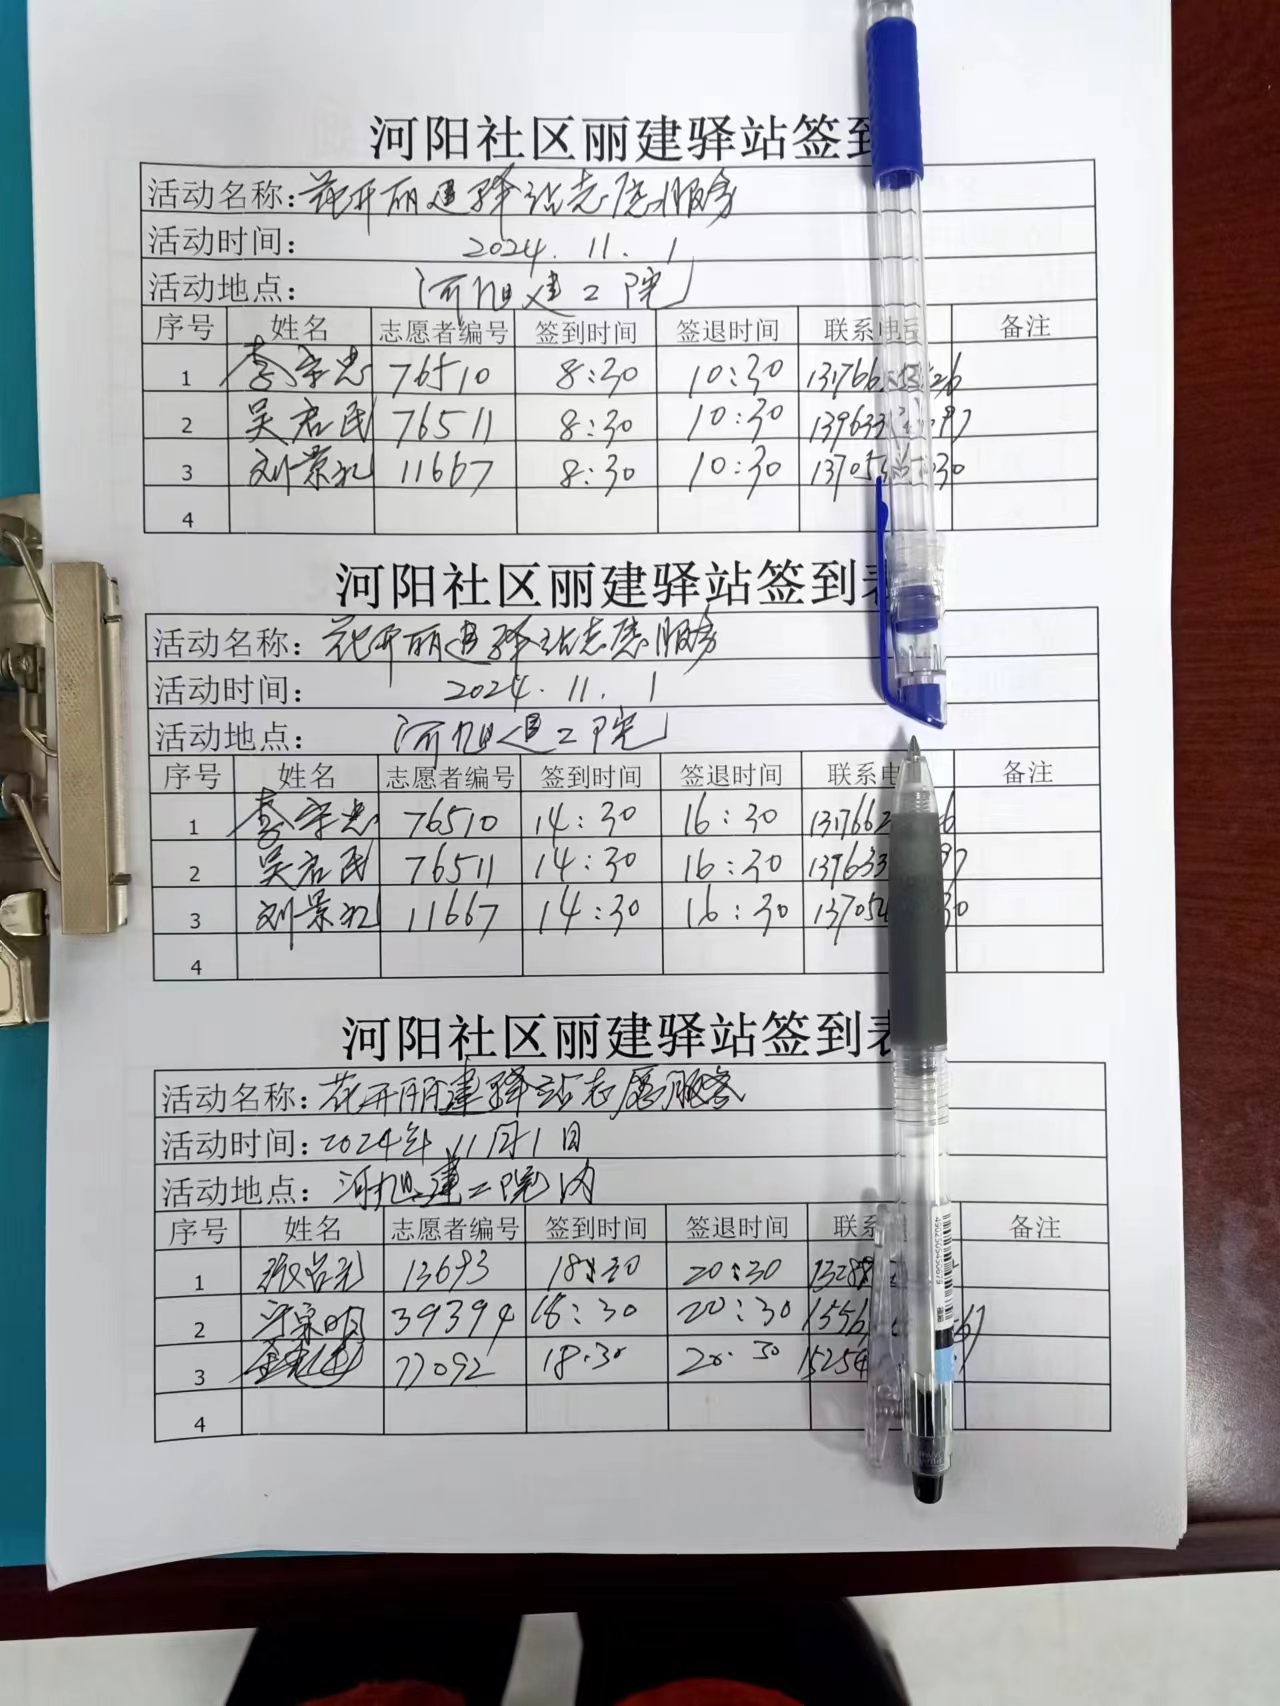 河阳社区丽建驿站签到
活动名称：花开丽建驿站志愿服务
活动时间： 2024.11.1
活动地点： 河旭建工院
序号 姓名 志愿者编号 签到时间 签退时间 联系电话 备注
1 李宗忠 76510 8:30 10:30
2 吴启民 76511 8:30 10:30
3 刘景礼 11667 8:30 10:30
4
河阳社区丽建驿站签到表
活动名称：花开丽建驿站志愿服务
活动时间： 2024.11.1
活动地点： 河旭建工院
序号 姓名 志愿者编号 签到时间 签退时间 联系电 备注
1 李宗忠 76510 14:30 16:30
2 吴启民 76511 14:30 16:30
3 刘景礼 11667 14:30 16:30
4
河阳社区丽建驿站签到表
活动名称：花开丽建驿站志愿服务
活动时间：2024年11月1日
活动地点：河旭建工院内
序号 姓名 志愿者编号 签到时间 签退时间 联系 备注
1 13693 18:30 20:30
2 39394 18:30 20:30
3 77092 18:30 20:30
4